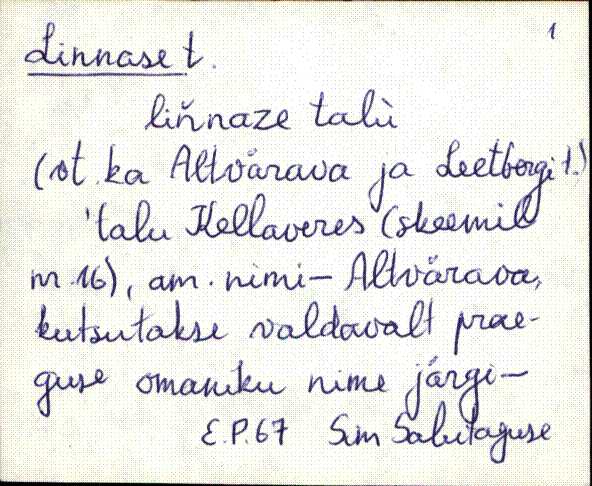 1
Linnase t.
liňnaze talù
(vt. ka Altvärava ja Leetbergi t.)
'talu Kellaveres (skeemil
nr. 16), am. nimi – Altvärava,
kutsutakse valdavalt prae-
guse omaniku nime järgi –
E.P. 67 Sim Salutaguse